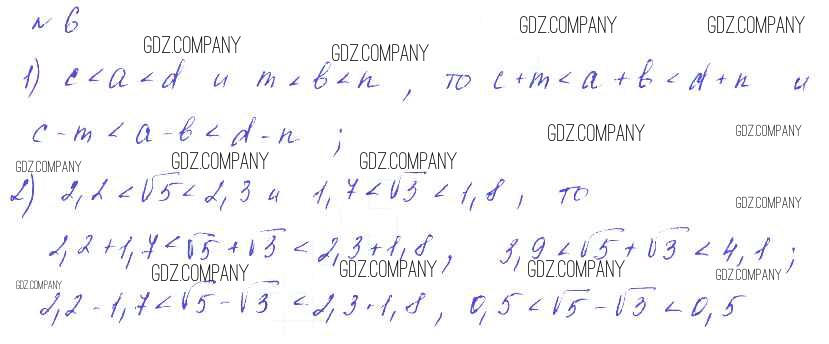 № 6
GDZ.COMPANY GDZ.COMPANY
GDZ.COMPANY GDZ.COMPANY
1) c < a < d и m < b < n , то c + m < a + b < d + n и
c - m < a - b < d - n ;
GDZ.COMPANY GDZ.COMPANY
GDZ.COMPANY GDZ.COMPANY GDZ.COMPANY
2) 2,2 < √5 < 2,3 и 1,7 < √3 < 1,8 , то
GDZ.COMPANY
2,2 + 1,7 < √5 + √3 < 2,3 + 1,8 , 3,9 < √5 + √3 < 4,1 ;
GDZ.COMPANY GDZ.COMPANY GDZ.COMPANY GDZ.COMPANY
GDZ.COMPANY
2,2 - 1,7 < √5 - √3 < 2,3 - 1,8 , 0,5 < √5 - √3 < 0,5